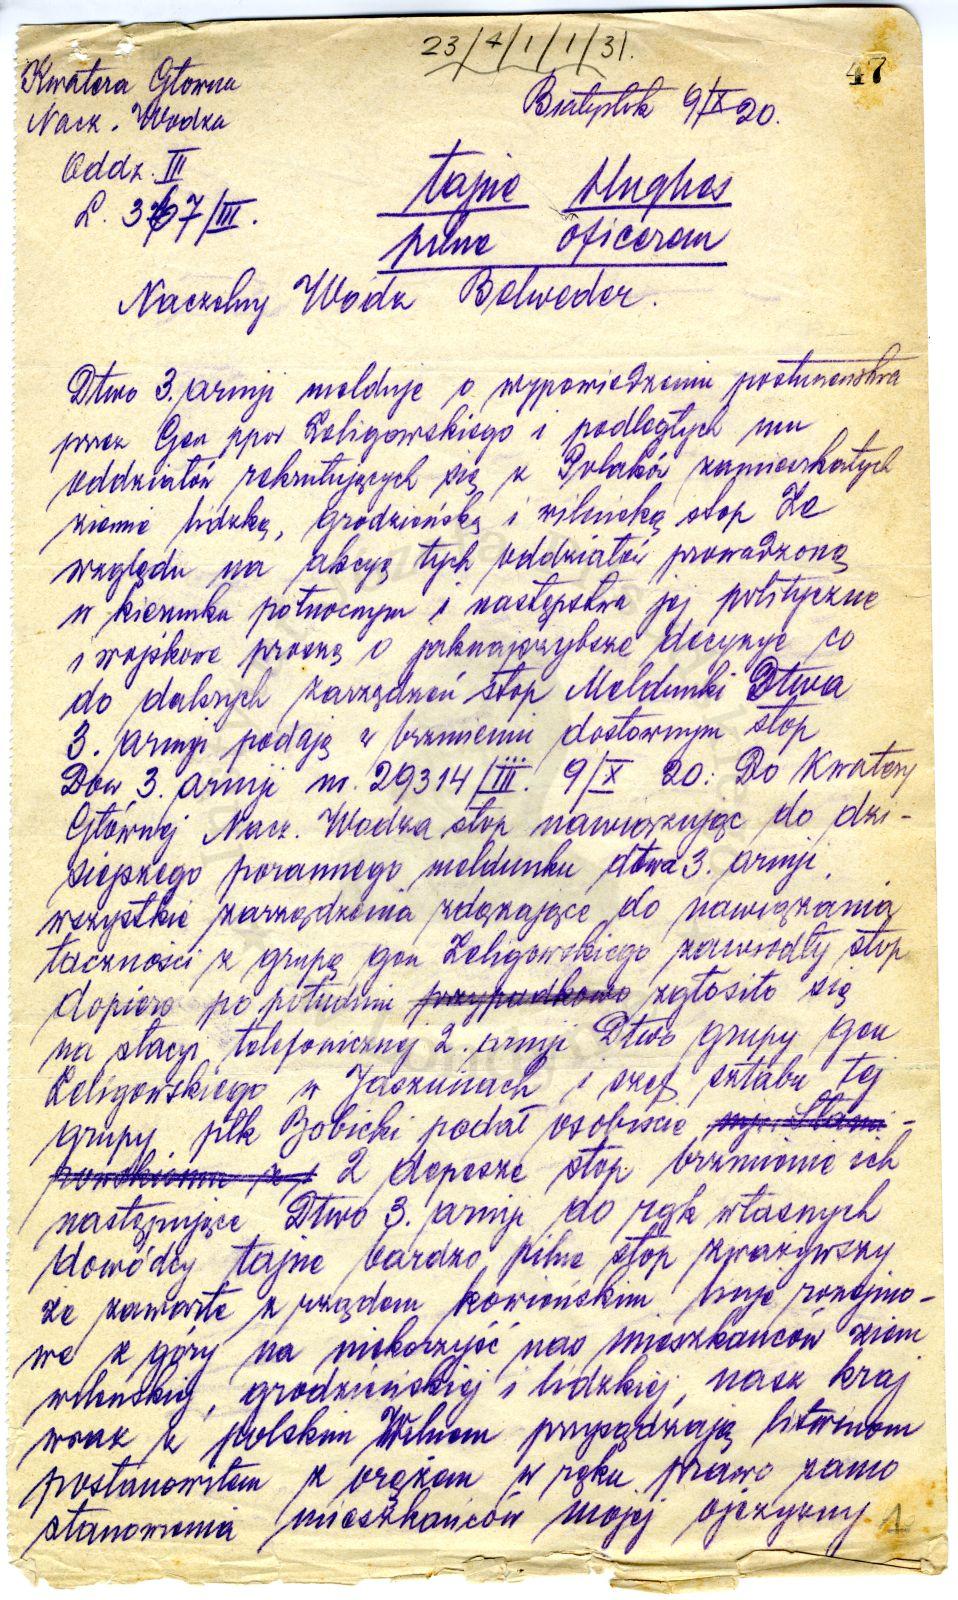 23/4/1/1/31.
47
Kwatera Głowna
Nacz. Wodza
Oddz. III
L. 3767/III.
Białystok 9/X 20.
tajne Hughes
pilne oficerem
Naczelny Wodz Belweder.
Dtwo 3. armji melduje o wypowiedzeniu posłuszeństwa
przez Gen ppor Żeligowskiego i podległych mu
oddziałów rekrutujących się z Polaków zamieszkałych
ziemię lidzką, grodzieńską i wileńską stop Ze
względu na akcyą tych oddziałów prowadzoną
w kierunku północnym i następstwa jej polityczne
i wojskowe proszą o jaknajszybsze decyzye co
do dalszych zarządzeń stop Meldunki Dtwa
3. armji podają w brzmieniu dosłownym stop
Dow 3. armji nr. 29314/III. 9/X 20: Do Kwatery
Głównej Nacz. Wodza stop nawiązując do dzi-
siejszego porannego meldunku dtwa 3. armji.
wszystkie zarządzenia zdążające do nawiązania
łaczności z grupą gen Żeligowskiego zawiodły stop
dopiero po południu przypadkowo zgłosiło się
na stacyi telefonicznej 2. armji Dtwo grupy gen
Żeligowskiego w Jaszunach i szef sztabu tej
grupy płk Bobicki podał osobiscie mjr. Stami-
powskiemu 2 depesze stop brzmienie ich
następujące Dtwo 3. armji do rąk własnych
dowódcy tajne bardzo pilne stop zważywszy
że zawarte z rządem kowieńskim linje rozejmo-
we z góry na niekorzyść nas mieszkańców ziem
wileńskiej, grodzieńskiej i lidzkiej, nasz kraj
wraz z polskim Wilnem przysądzają litwinom
postanowiłem z orężem w ręku prawo samo
stanowienia mieszkańców mojej ojczyzny
1